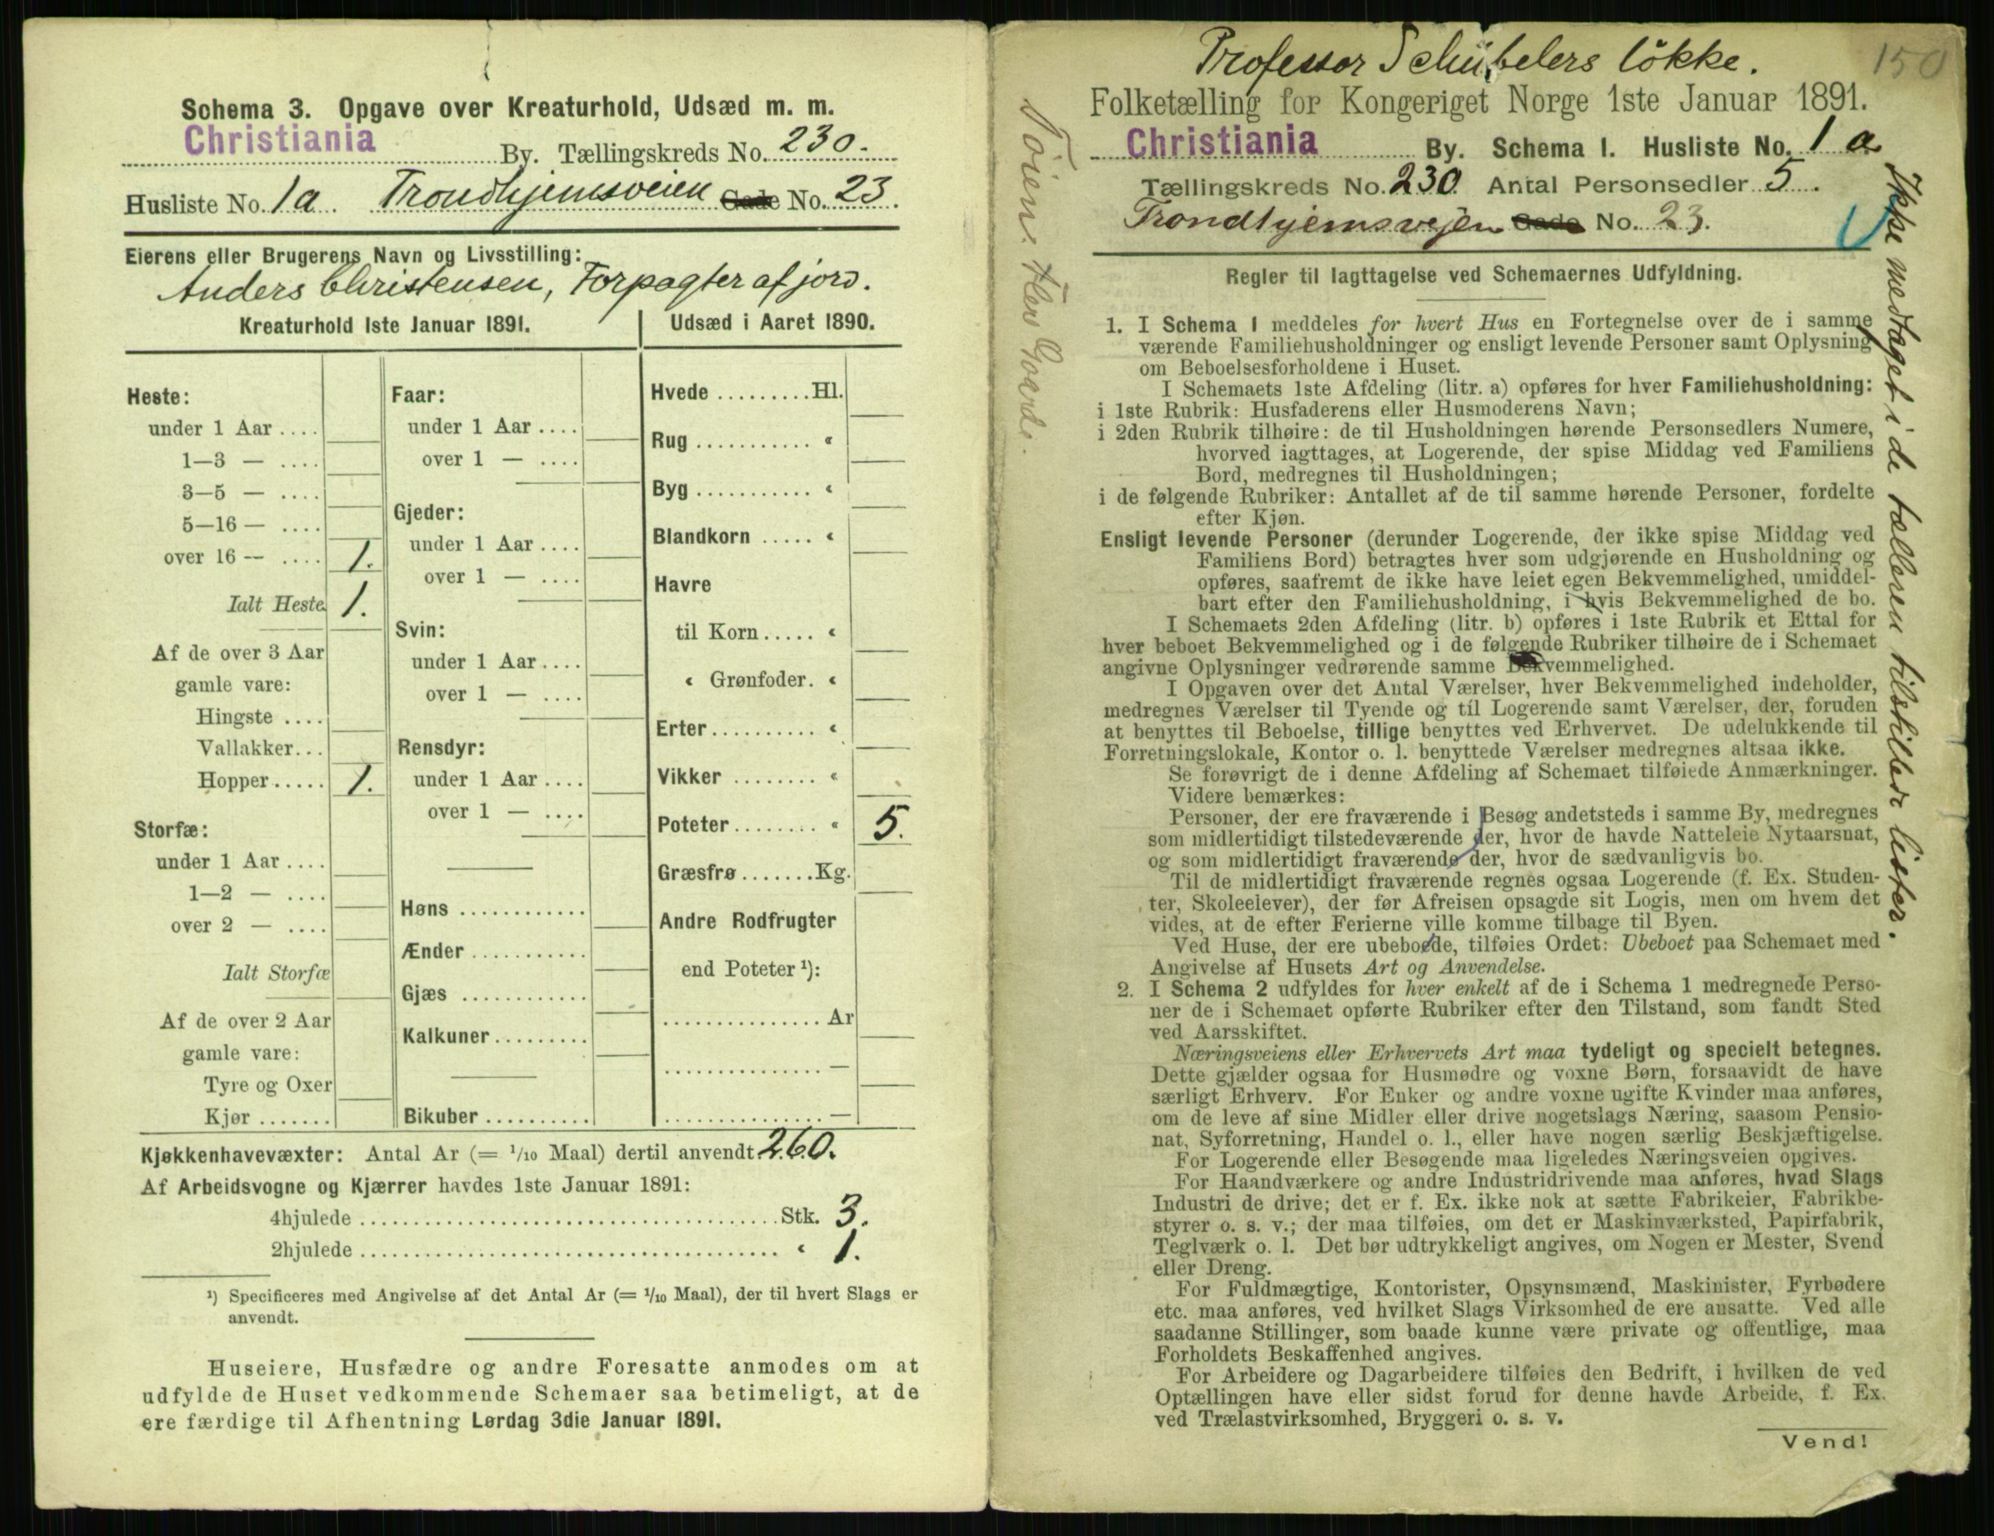 Schema 3. Opgave over Kreaturhold, Udsæd m. m.
Christiania By. Tællingskreds No. 230.
Husliste No. 1a Trondhjemsveien Gade No. 23.
Eierens eller Brugerens Navn og Livsstilling:
Anders Christensen, Forpagter af jord.
Kreaturhold 1ste Januar 1891.
Heste:
under 1 Aar ....
1—3 — ....
3—5 — ....
5—16 — ....
over 16 — .... 1.
Ialt Heste 1.
Af de over 3 Aar
gamle vare:
Hingste ....
Vallakker...
Hopper..... 1.
Storfæ:
under 1 Aar ....
1—2 — ....
over 2 — ....
Ialt Storfæ
Af de over 2 Aar
gamle vare:
Tyre og Oxer
Kjør .......
Faar:
under 1 Aar ....
over 1 — ....
Gjeder:
under 1 Aar ....
over 1 — ....
Svin:
under 1 Aar ....
over 1 — ....
Rensdyr:
under 1 Aar ....
over 1 — ....
Høns ............
Ænder ...........
Gjæs ............
Kalkuner.........
Bikuber ..........
Udsæd i Aaret 1890.
Hvede .........Hl.
Rug ........... «
Byg ........... «
Blandkorn ..... «
Havre
til Korn ..... «
« Grønfoder. «
Erter.......... «
Vikker ........ «
Poteter........ « 5.
Græsfrø .......Kg.
Andre Rodfrugter
end Poteter ¹):
...............Ar
............... —
............... —
Kjøkkenhavevæxter: Antal Ar (= 1/10 Maal) dertil anvendt 2.60.
Af Arbeidsvogne og Kjærrer havdes 1ste Januar 1891:
4hjulede ........................................ Stk. 3.
2hjulede ........................................ « 1.
¹) Specificeres med Angivelse af det Antal Ar (= 1/10 Maal), der til hvert Slags er
anvendt.
Huseiere, Husfædre og andre Foresatte anmodes om at
udfylde de Huset vedkommende Schemaer saa betimeligt, at de
ere færdige til Afhentning Lørdag 3die Januar 1891.
Professor Schübelers løkke.
150
Folketælling for Kongeriget Norge 1ste Januar 1891.
Christiania By. Schema 1. Husliste No. 1 a
Tællingskreds No. 230 Antal Personsedler 5.
Trondhjemsvejen Gade No. 23.
Tøien
Ikke medtaget i de tælleren tilstillede lister.
Regler til Iagttagelse ved Schemaernes Udfyldning.
1. I Schema 1 meddeles for hvert Hus en Fortegnelse over de i samme
værende Familiehusholdninger og ensligt levende Personer samt Oplysning
om Beboelsesforholdene i Huset.
I Schemaets 1ste Afdeling (litr. a) opføres for hver Familiehusholdning:
i 1ste Rubrik: Husfaderens eller Husmoderens Navn;
i 2den Rubrik tilhøire: de til Husholdningen hørende Personsedlers Numere,
hvorved iagttages, at Logerende, der spise Middag ved Familiens
Bord, medregnes til Husholdningen;
i de følgende Rubriker: Antallet af de til samme hørende Personer, fordelte
efter Kjøn.
Ensligt levende Personer (derunder Logerende, der ikke spise Middag ved
Familiens Bord) betragtes hver som udgjørende en Husholdning og
opføres, saafremt de ikke have leiet egen Bekvemmelighed, umiddel-
bart efter den Familiehusholdning, i hvis Bekvemmelighed de bo.
I Schemaets 2den Afdeling (litr. b) opføres i 1ste Rubrik et Ettal for
hver beboet Bekvemmelighed og i de følgende Rubriker tilhøire de i Schemaet
angivne Oplysninger vedrørende samme Bekvemmelighed.
I Opgaven over det Antal Værelser, hver Bekvemmelighed indeholder,
medregnes Værelser til Tyende og til Logerende samt Værelser, der, foruden
at benyttes til Beboelse, tillige benyttes ved Erhvervet. De udelukkende til
Forretningslokale, Kontor o. l. benyttede Værelser medregnes altsaa ikke.
Se forøvrigt de i denne Afdeling af Schemaet tilføiede Anmærkninger.
Videre bemærkes:
Personer, der ere fraværende i Besøg andetsteds i samme By, medregnes
som midlertidigt tilstedeværende der, hvor de havde Natteleie Nytaarsnat,
og som midlertidigt fraværende der, hvor de sædvanligvis bo.
Til de midlertidigt fraværende regnes ogsaa Logerende (f. Ex. Studen-
ter, Skoleelever), der før Afreisen opsagde sit Logis, men om hvem det
vides, at de efter Ferierne ville komme tilbage til Byen.
Ved Huse, der ere ubeboede, tilføies Ordet: Ubeboet paa Schemaet med
Angivelse af Husets Art og Anvendelse.
2. I Schema 2 udfyldes for hver enkelt af de i Schema 1 medregnede Perso-
ner de i Schemaet opførte Rubriker efter den Tilstand, som fandt Sted
ved Aarsskiftet.
Næringsveiens eller Erhvervets Art maa tydeligt og specielt betegnes.
Dette gjælder ogsaa for Husmødre og voxne Børn, forsaavidt de have
særligt Erhverv. For Enker og andre voxne ugifte Kvinder maa anføres,
om de leve af sine Midler eller drive nogetslags Næring, saasom Pensio-
nat, Syforretning, Handel o. l., eller have nogen særlig Beskjæftigelse.
For Logerende eller Besøgende maa ligeledes Næringsveien opgives.
For Haandværkere og andre Industridrivende maa anføres, hvad Slags
Industri de drive; det er f. Ex. ikke nok at sætte Fabrikeier, Fabrikbe-
styrer o. s. v.; der maa tilføies, om det er Maskinværksted, Papirfabrik,
Teglværk o. l. Det bør udtrykkeligt angives, om Nogen er Mester, Svend
eller Dreng.
For Fuldmægtige, Kontorister, Opsynsmænd, Maskinister, Fyrbødere
etc. maa anføres, ved hvilket Slags Virksomhed de ere ansatte. Ved alle
saadanne Stillinger, som baade kunne være private og offentlige, maa
Forholdets Beskaffenhed angives.
For Arbeidere og Dagarbeidere tilføies den Bedrift, i hvilken de ved
Optællingen have eller sidst forud for denne havde Arbeide, f. Ex.
ved Trælastvirksomhed, Bryggeri o. s. v.
Vend!